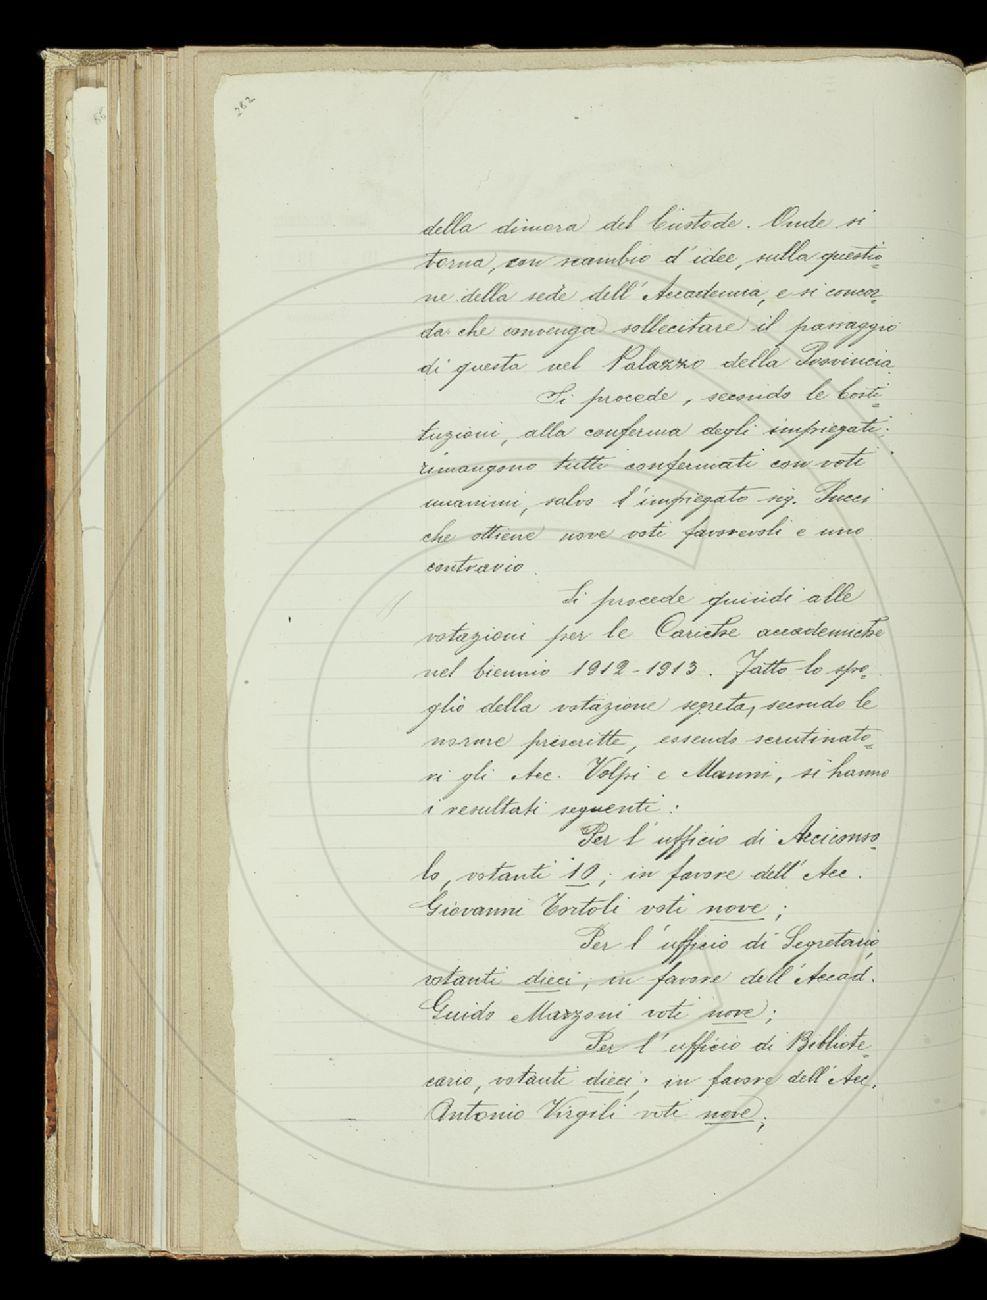 262
della dimora del Custode. Onde si
torna, con scambio d'idee, sulla questio=
ne della sede dell'Accademia, e si concor=
da che convenga sollecitare il passaggio
di questa nel Palazzo della Provincia.
Si procede, secondo le Costi=
tuzioni, alla conferma degli impiegati:
rimangono tutti confermati con voti
unanimi, salvo l'impiegato sig. Pucci
che ottiene nove voti favorevoli e uno
contrario.
Si procede quindi alle
votazioni per le Cariche accademiche
nel biennio 1912-1913. Fatto lo spo=
glio della votazione segreta, secondo le
norme prescritte, essendo scrutinato=
ri gli Acc. Volpi e Manni, si hanno
i resultati seguenti:
Per l'ufficio di Arciconso=
lo, votanti 10; in favore dell'Acc.
Giovanni Tortoli voti nove;
Per l'ufficio di Segretario,
votanti dieci; in favore dell'Accad.
Guido Mazzoni voti nove;
Per l'ufficio di Bibliote=
cario, votanti dieci; in favore dell'Acc.
Antonio Virgili voti nove;